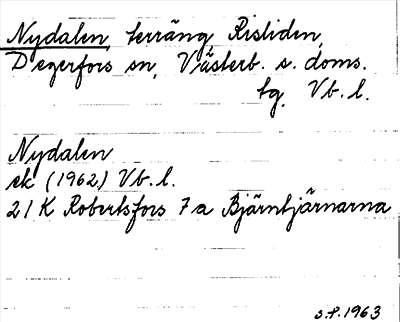 Nydalen, terräng, Risliden,
Degerfors sn, Västerb. s. doms.
tg, Vb. l.
Nydalen
ek (1962) Vb. l.
21 K Robertsfors 7 a Bjärntjärnarna
s.f. 1963